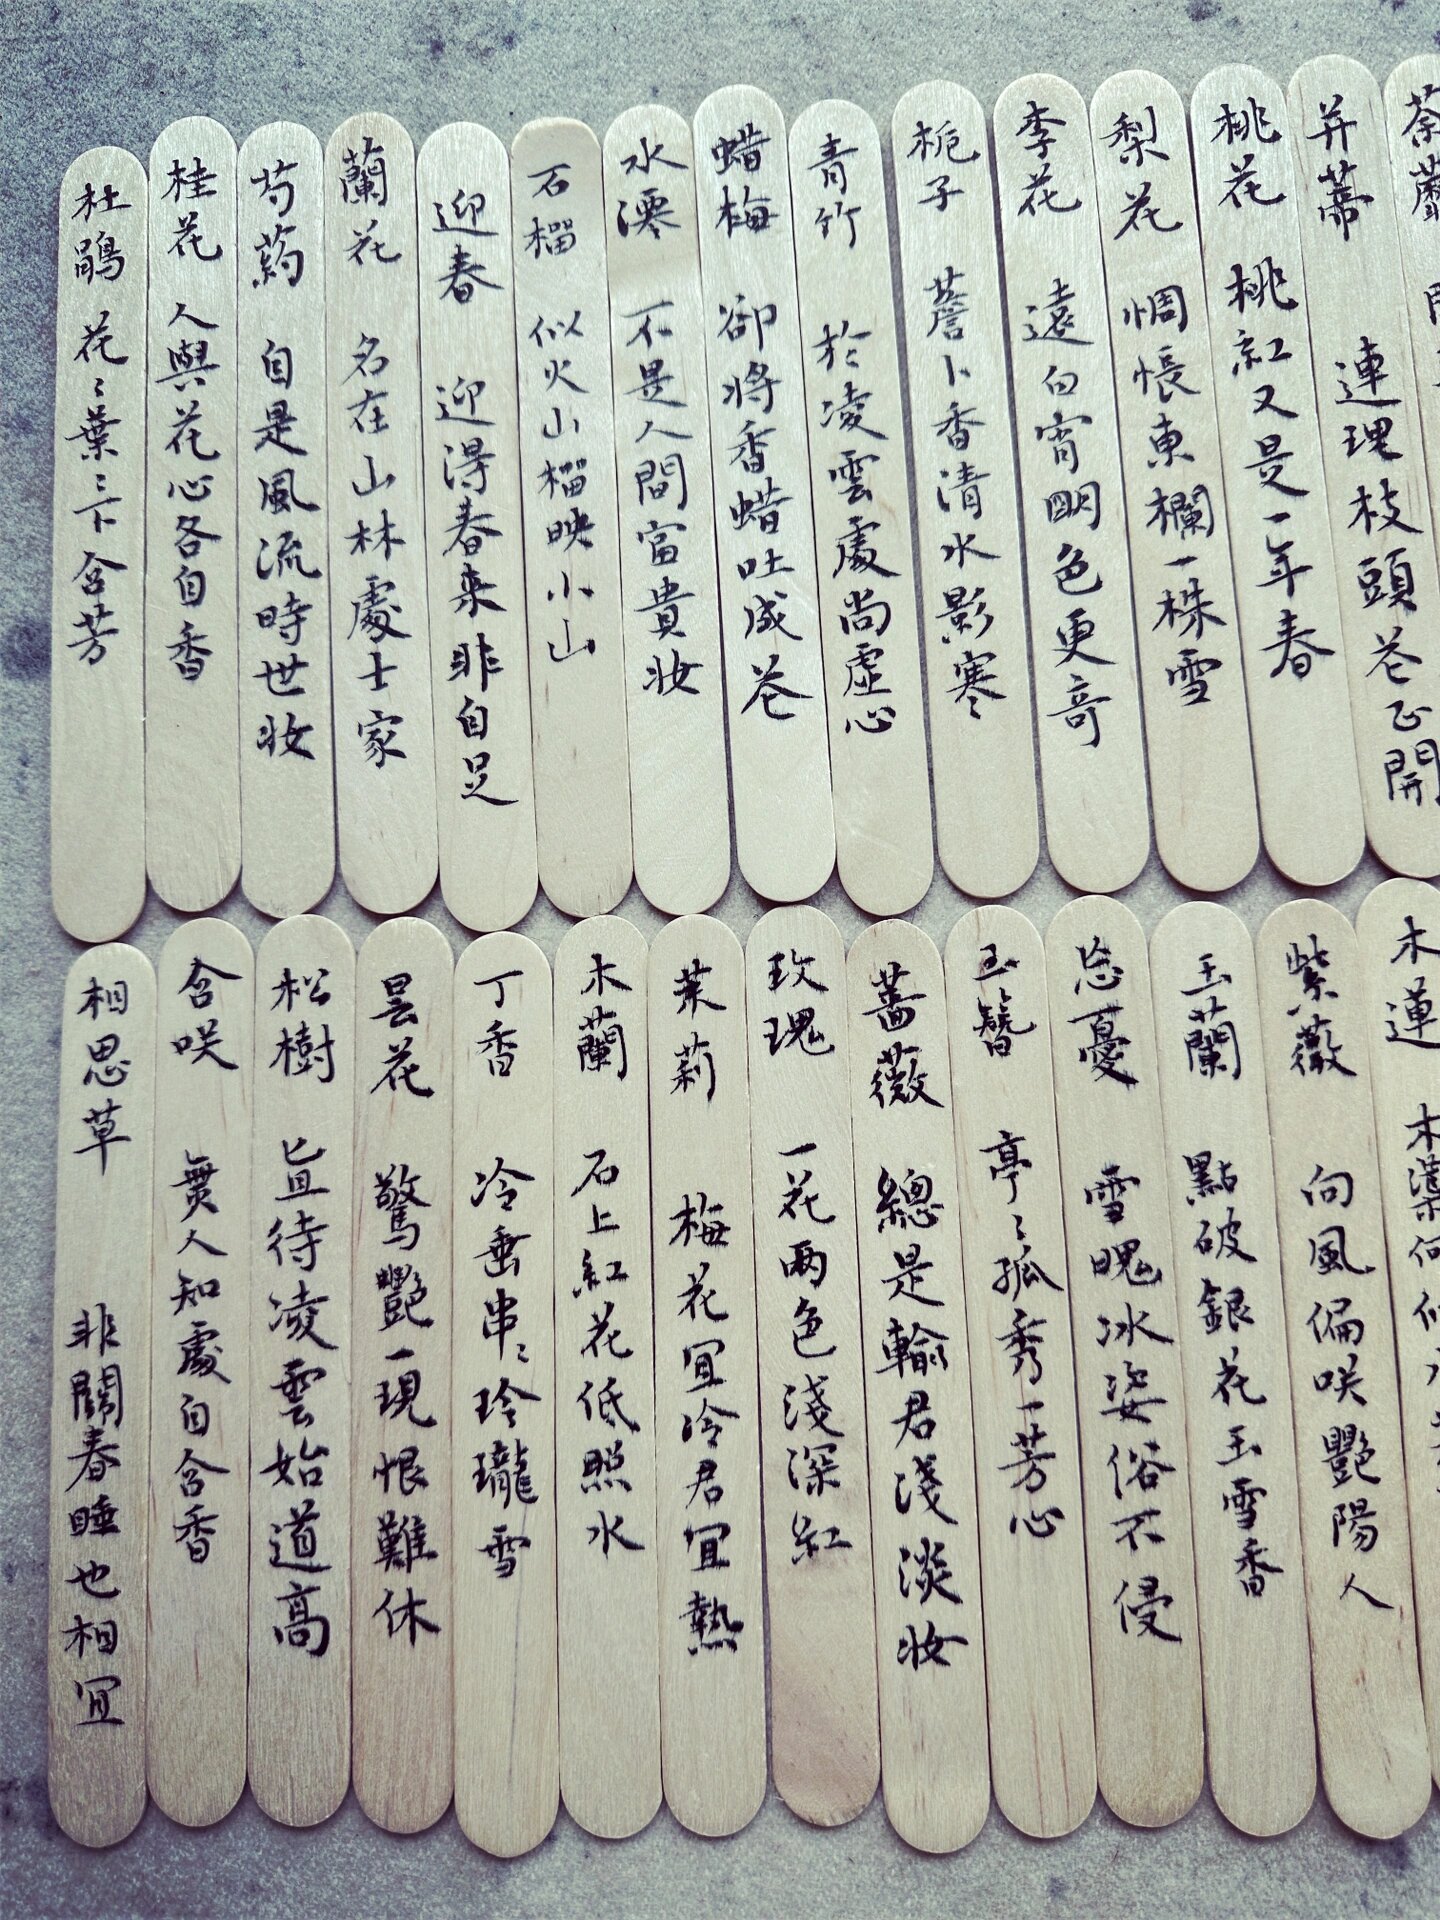 杜鵑 花〻葉〻下含芳
桂花 人與花心各自香
芍藥 自是風流時世妝
蘭花 名在山林處士家
迎春 迎得春來非自足
石榴 似火山榴映小山
水澪 不是人間富貴妝
蜡梅 卻將香蜡吐成花
青竹 於凌雲處尚虛心
梔子 薝卜香清水影寒
李花 遠白宵明色更奇
梨花 惆悵東欄一株雪
桃花 桃紅又是一年春
并蒂 連理枝頭花正開
荼蘼
相思草 非關春睡也相宜
含咲 無人知處自含香
松樹 直待凌雲始道高
曇花 驚艷一現恨難休
丁香 冷垂串〻玲瓏雪
木蘭 石上紅花低照水
茉莉 梅花宜冷君宜熱
玫瑰 一花兩色淺深紅
薔薇 總是輸君淺淡妝
玉簪 亭〻孤秀一芳心
忘憂 雪魄冰姿俗不侵
玉蘭 點破銀花玉雪香
紫薇 向風偏咲艷陽人
木蓮